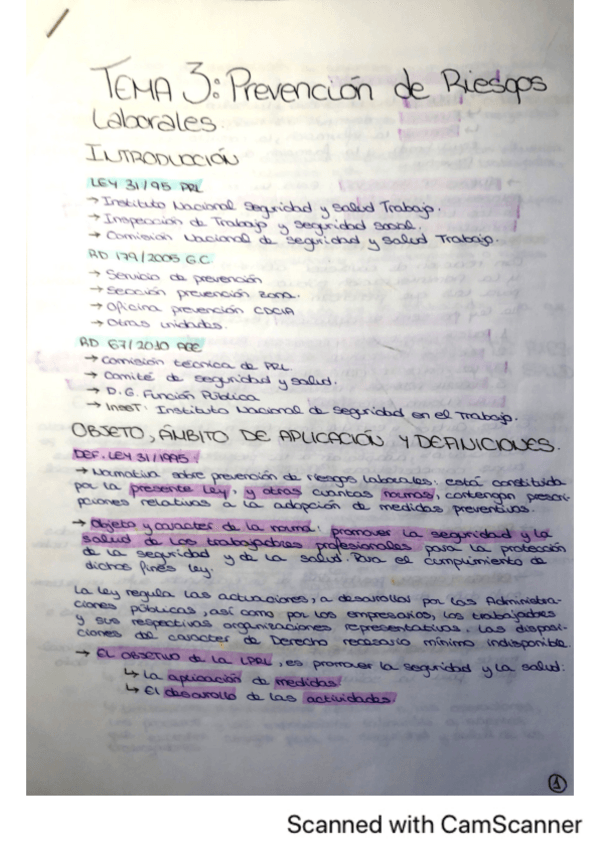 TEMA 3: Prevención de Riesgos
Laborales.
INTRODUCCIÓN
LEY 31/95 PRL
→ Instituto Nacional Seguridad y Salud Trabajo.
→ Inspección de Trabajo y seguridad social.
→ Comisión Nacional de seguridad y salud Trabajo.
RD 179/2005 G.C
→ Servicio de prevención
→ Sección prevención zona.
→ Oficina prevención CDCIA
→ Otras unidades.
RD 67/2010 AGE
→ Comisión técnica de PRL.
→ Comité de seguridad y salud.
→ D.G. Función Pública
→ INSST: Instituto Nacional de Seguridad en el Trabajo.
OBJETO, ÁMBITO DE APLICACIÓN Y DEFINICIONES.
DEF. LEY 31/1995:
→ Normativa sobre prevención de riesgos laborales: está constituida
por la presente Ley, y otras cuantas normas, contengan prescri-
pciones relativas a la adopción de medidas preventivas.
→ Objeto y caracter de la norma: promover la seguridad y la
salud de los trabajadores profesionales para la protección
de la seguridad y de la salud. Para el cumplimiento de
dichos fines ley.
La ley regula las actuaciones, a desarrollar por las Administra-
ciones públicas, así como por los empresarios, los trabajadores
y sus respectivas organizaciones representativas. Las disposi-
ciones del caracter de Derecho necesario mínimo indisponible.
→ El OBJETIVO de la LPRL, es promover la seguridad y la salud:
↳ La aplicación de medidas
↳ El desarrollo de las actividades
1
Scanned with CamScanner